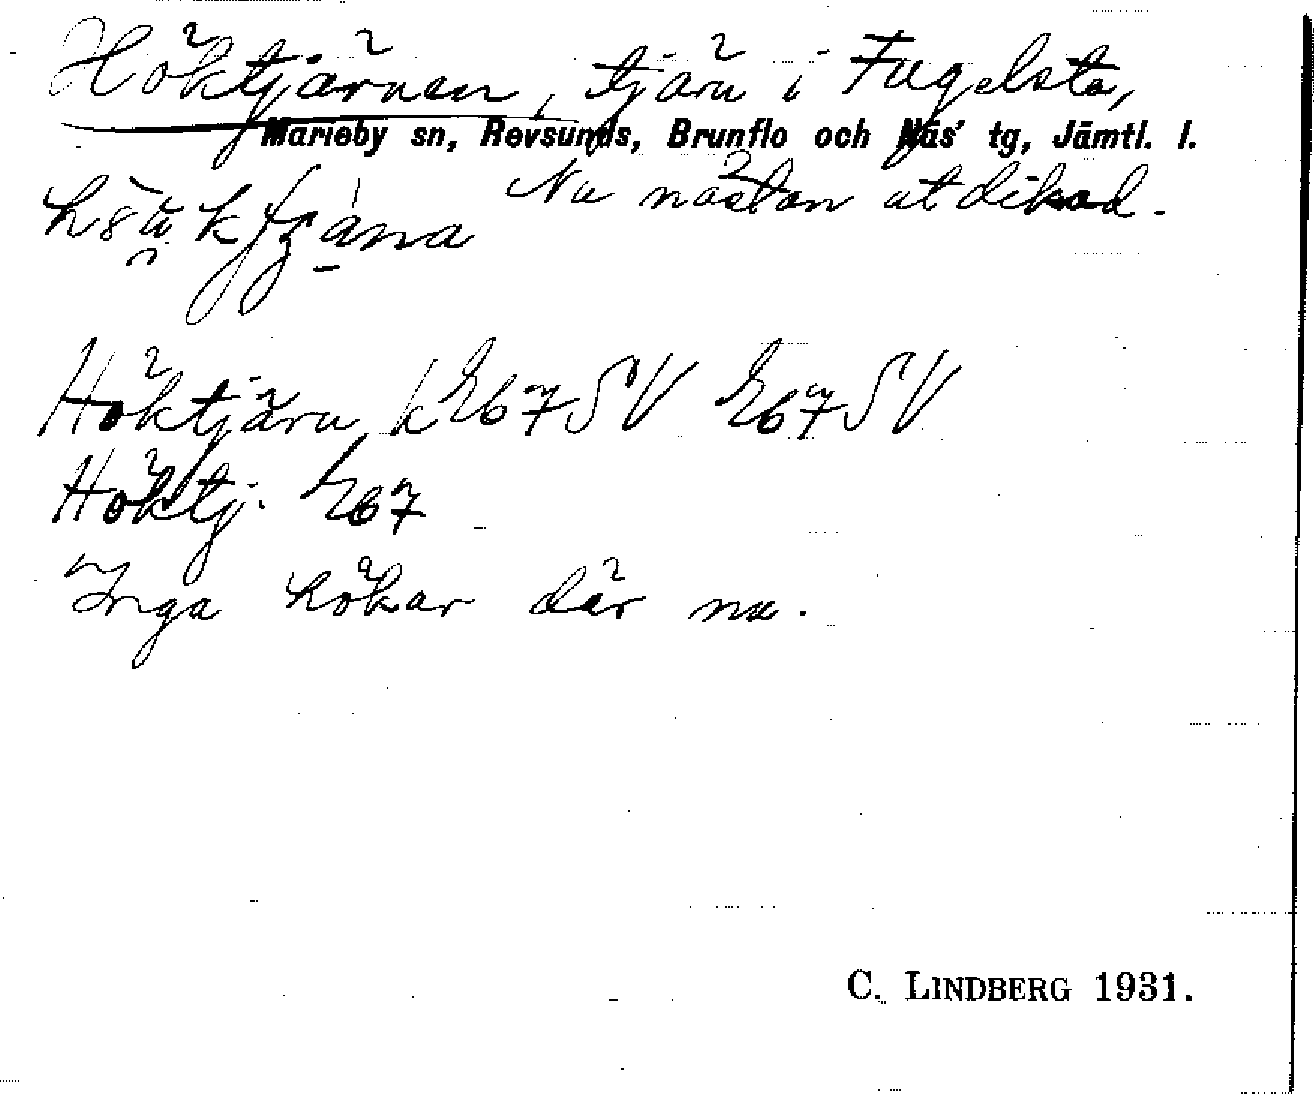 Höktjärnen, tjärn i Fugelsta,
Marieby sn, Revsunds, Brunflo och Näs' tg, Jämtl. l.
Nu nästan utdikad.
Höktjärn k E67SV E67SV
Höktj. E67
Inga hökar där nu.
C. LINDBERG 1931.